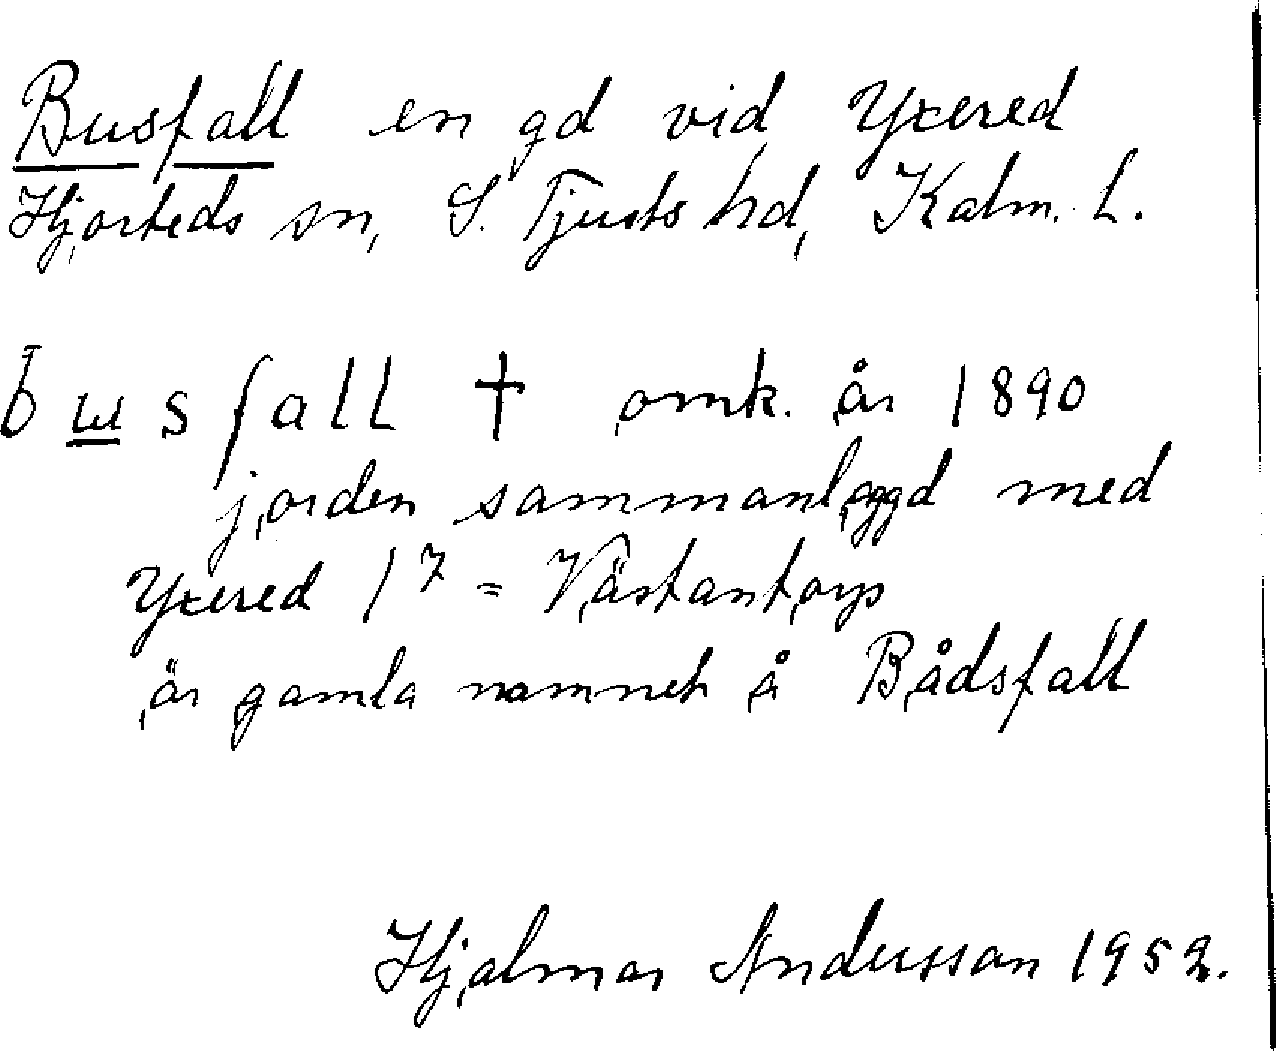 Busfall en gd vid Yxered
Hjorteds sn, S. Tjusts hd, Kalm. L.
busfall † omk. år 1890
jorden sammanlaggd med
Yxered 1 7 = Västantorps
är gamla namnet å Bådsfall
Hjalmar Andersson 1952.